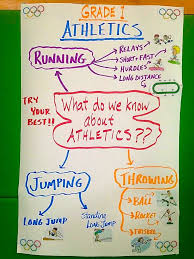 GRADE 1
ATHLETICS
RUNNING
RELAYS
SHORT + FAST
HURDLES
LONG DISTANCE
TRY
YOUR
BEST!!
What do we know
about
ATHLETICS??
JUMPING
LONG JUMP
Standing
Long Jump
THROWING
BALL
ROCKET
FRISBEE